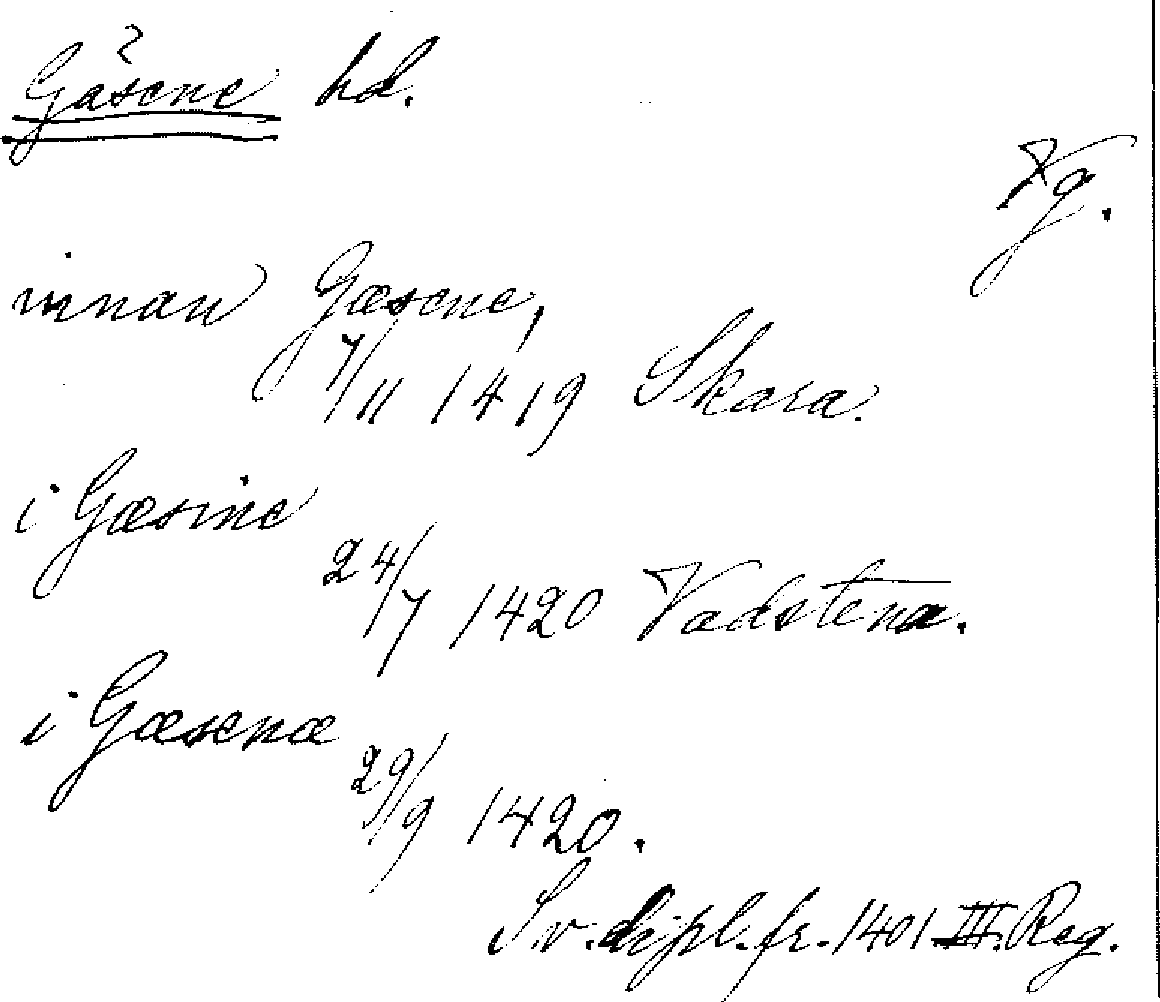 Gäsene hd.
Vg.
innan Gæsene,
7/11 1419 Skara.
i Gæsine
24/7 1420 Vadstena.
i Gæsenæ
29/9 1420.
Sv. dipl. fr. 1401 III. Reg.